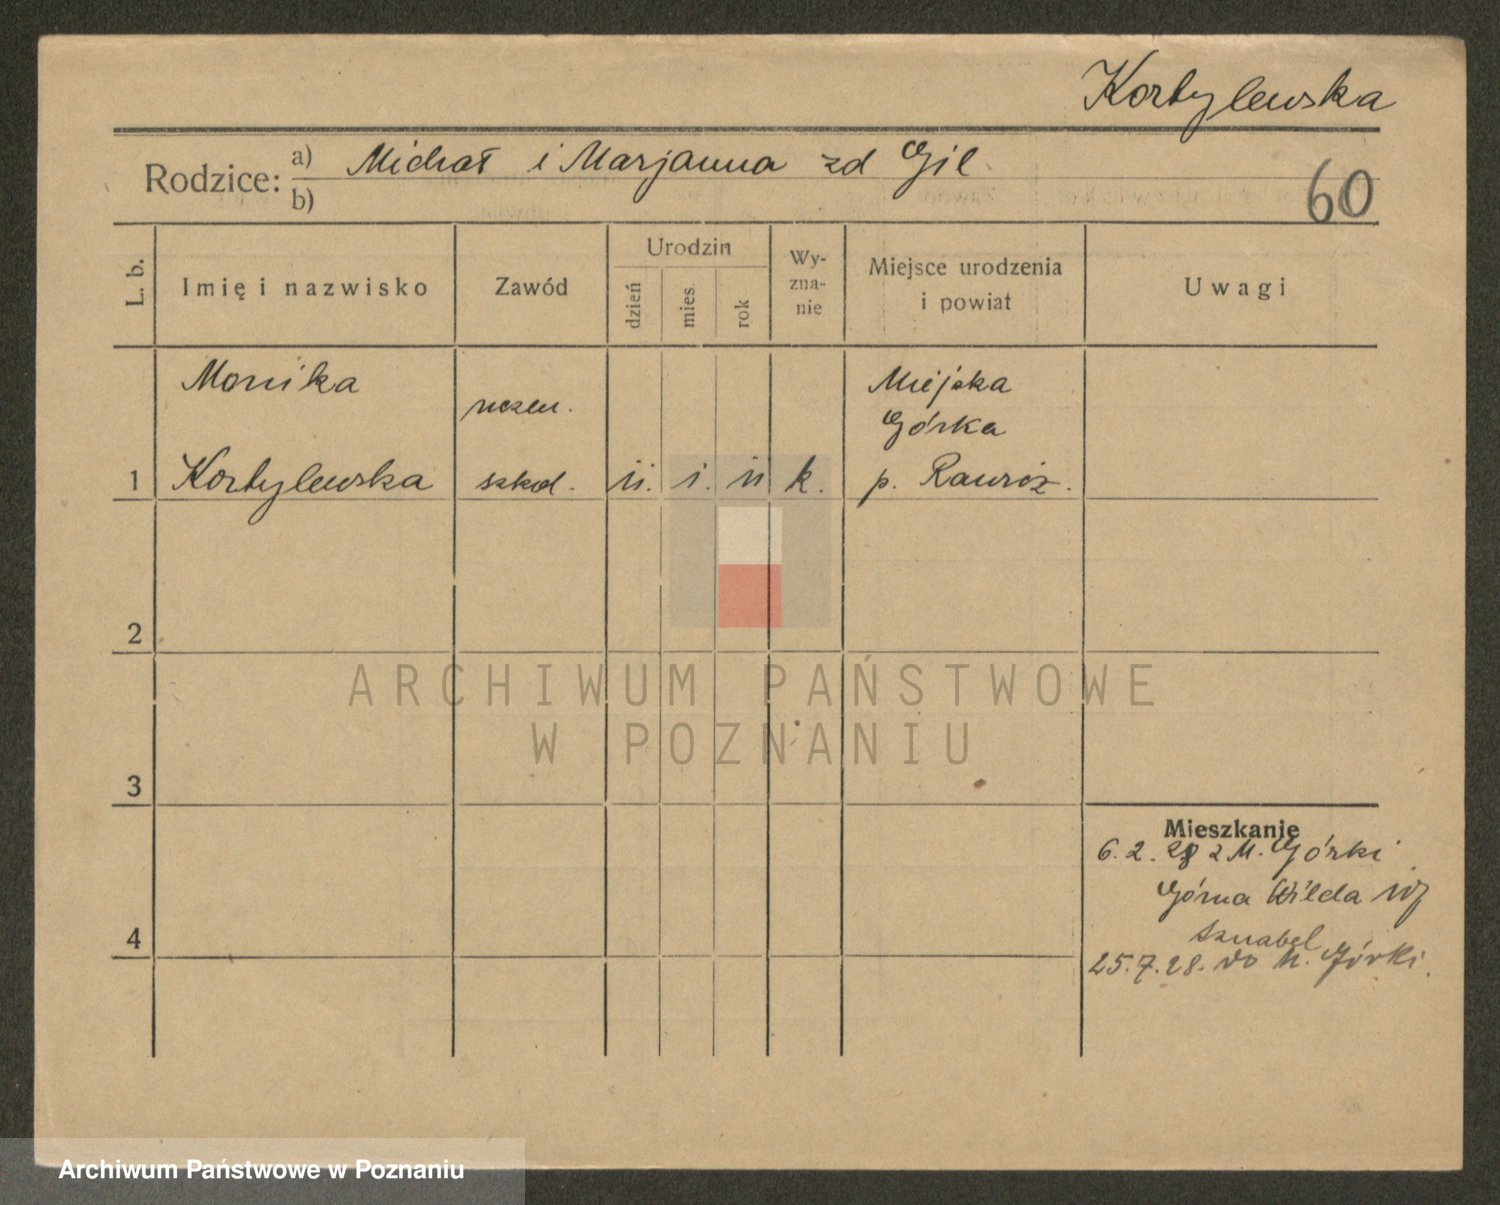 Kortylewska
Rodzice: a) Michał i Marjanna zd Gil
b)
60
L. b.
Imię i nazwisko
Zawód
Urodzin
dzień
mies.
rok
Wy-
zna-
nie
Miejsce urodzenia
i powiat
Uwagi
Monika
uczen.
Miejska
Górka
1 Kortylewska szkol. 11. 1. 11 k. p. Rawicz.
2
3
4
ARCHIWUM PAŃSTWOWE
W POZNANIU
Mieszkanie
6.2.28 z M. Górki
Górna Wilda
Sznabel
25.7.28. do M. Górki.
Archiwum Państwowe w Poznaniu